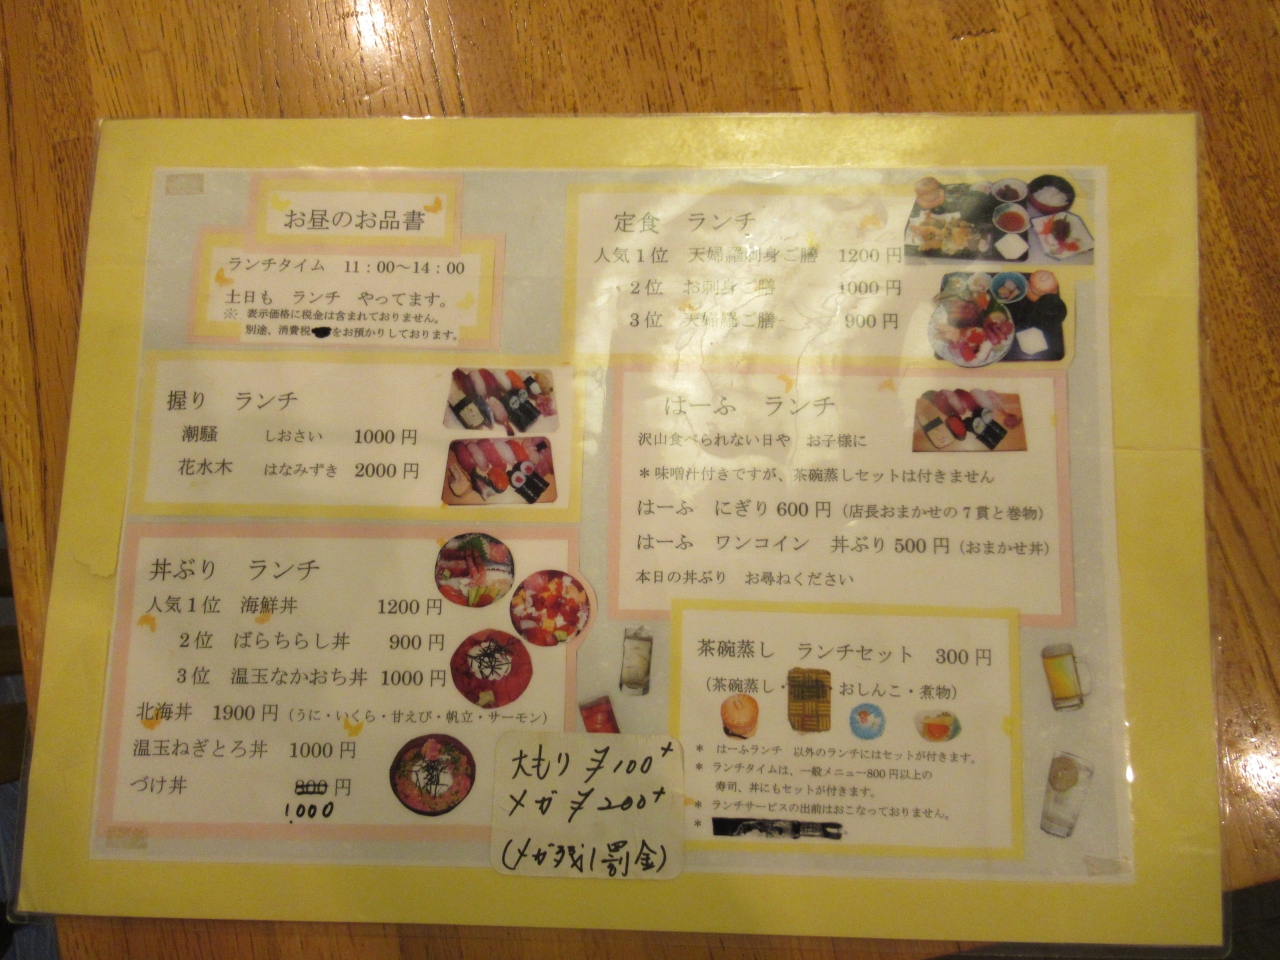 お昼のお品書
ランチタイム 11:00～14:00
土日も ランチ やってます。
※ 表示価格に税金は含まれておりません。
別途、消費税 をお預かりしております。
握り ランチ
潮騒 しおさい 1000円
花水木 はなみずき 2000円
丼ぶり ランチ
人気1位 海鮮丼 1200円
2位 ばらちらし丼 900円
3位 温玉なかおち丼 1000円
北海丼 1900円(うに・いくら・甘えび・帆立・サーモン)
温玉ねぎとろ丼 1000円
づけ丼 800円
1000
定食 ランチ
人気1位 天婦羅刺身ご膳 1200円
2位 お刺身ご膳 1000円
3位 天婦羅ご膳 900円
はーふ ランチ
沢山食べられない日や お子様に
*味噌汁付きですが、茶碗蒸しセットは付きません
はーふ にぎり600円(店長おまかせの7貫と巻物)
はーふ ワンコイン 丼ぶり500円(おまかせ丼)
本日の丼ぶり お尋ねください
茶碗蒸し ランチセット 300円
(茶碗蒸し・ おしんこ・煮物)
* はーふランチ 以外のランチにはセットが付きます。
* ランチタイムは、一般メニュー800円以上の
寿司、丼にもセットが付きます。
* ランチサービスの出前はおこなっておりません。
*
大もり ¥100+
メガ ¥200+
(メガ残し罰金)